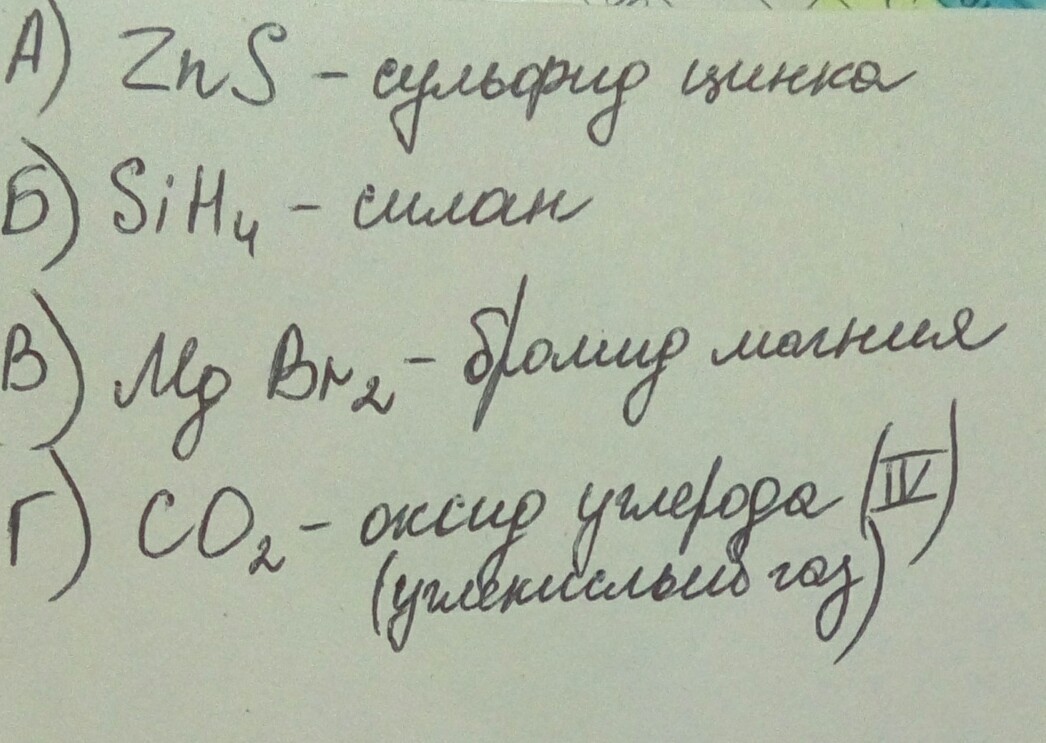 А) ZnS – сульфид цинка
Б) SiH₄ – силан
В) MgBr₂ – бромид магния
Г) CO₂ – оксид углерода (IV)
(углекислый газ)